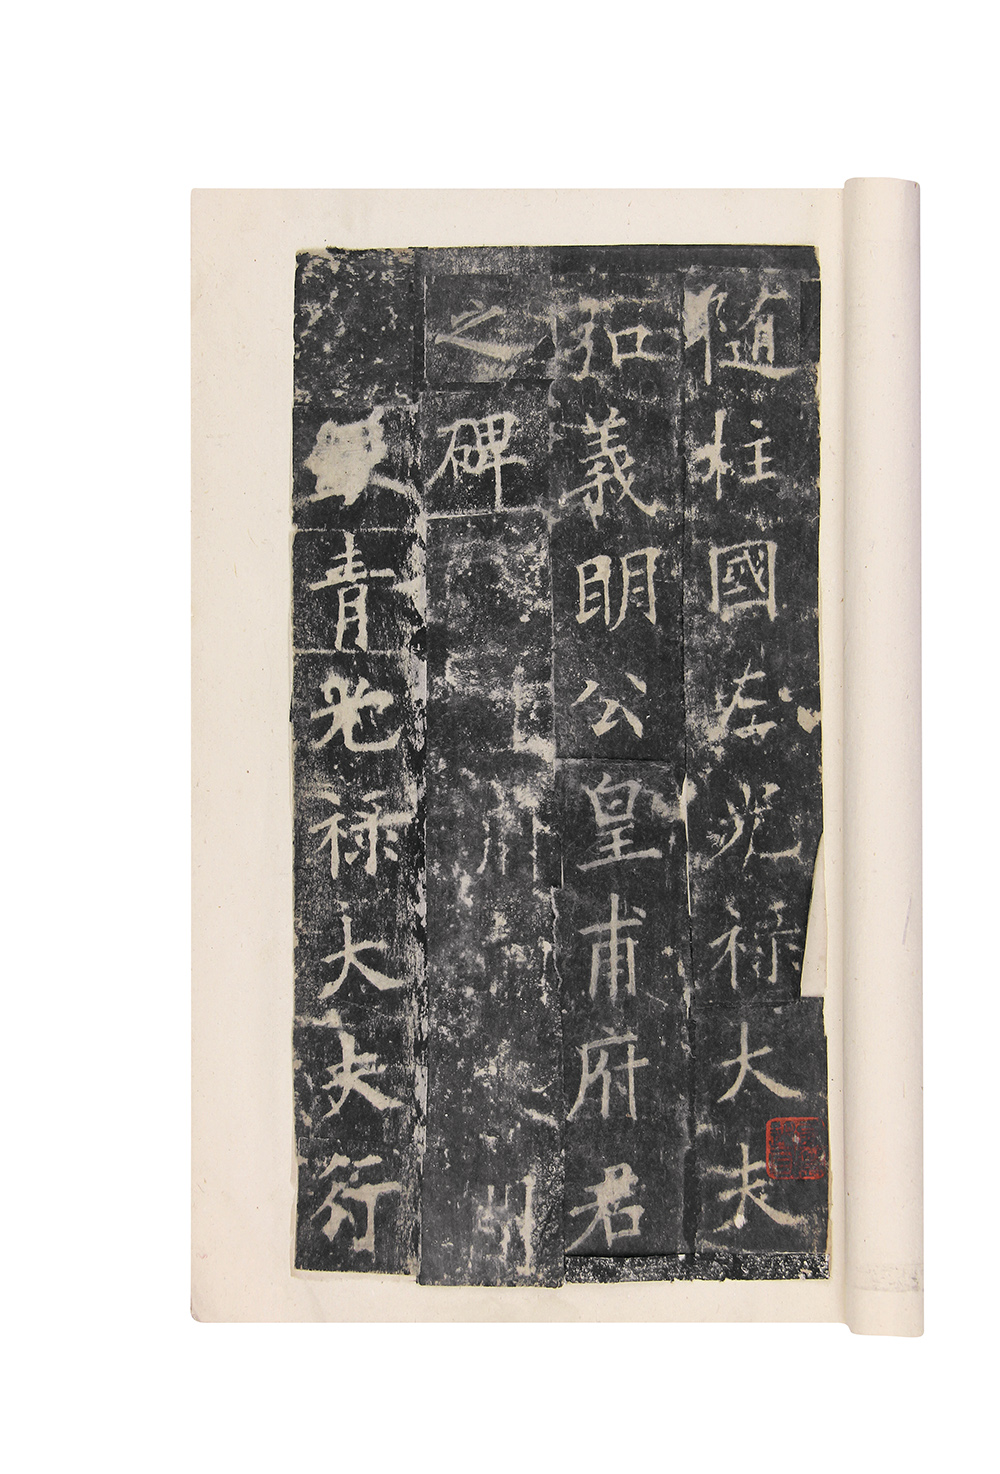 隨柱國左光祿大夫
弘義明公皇甫府君
之碑
青光祿大夫行